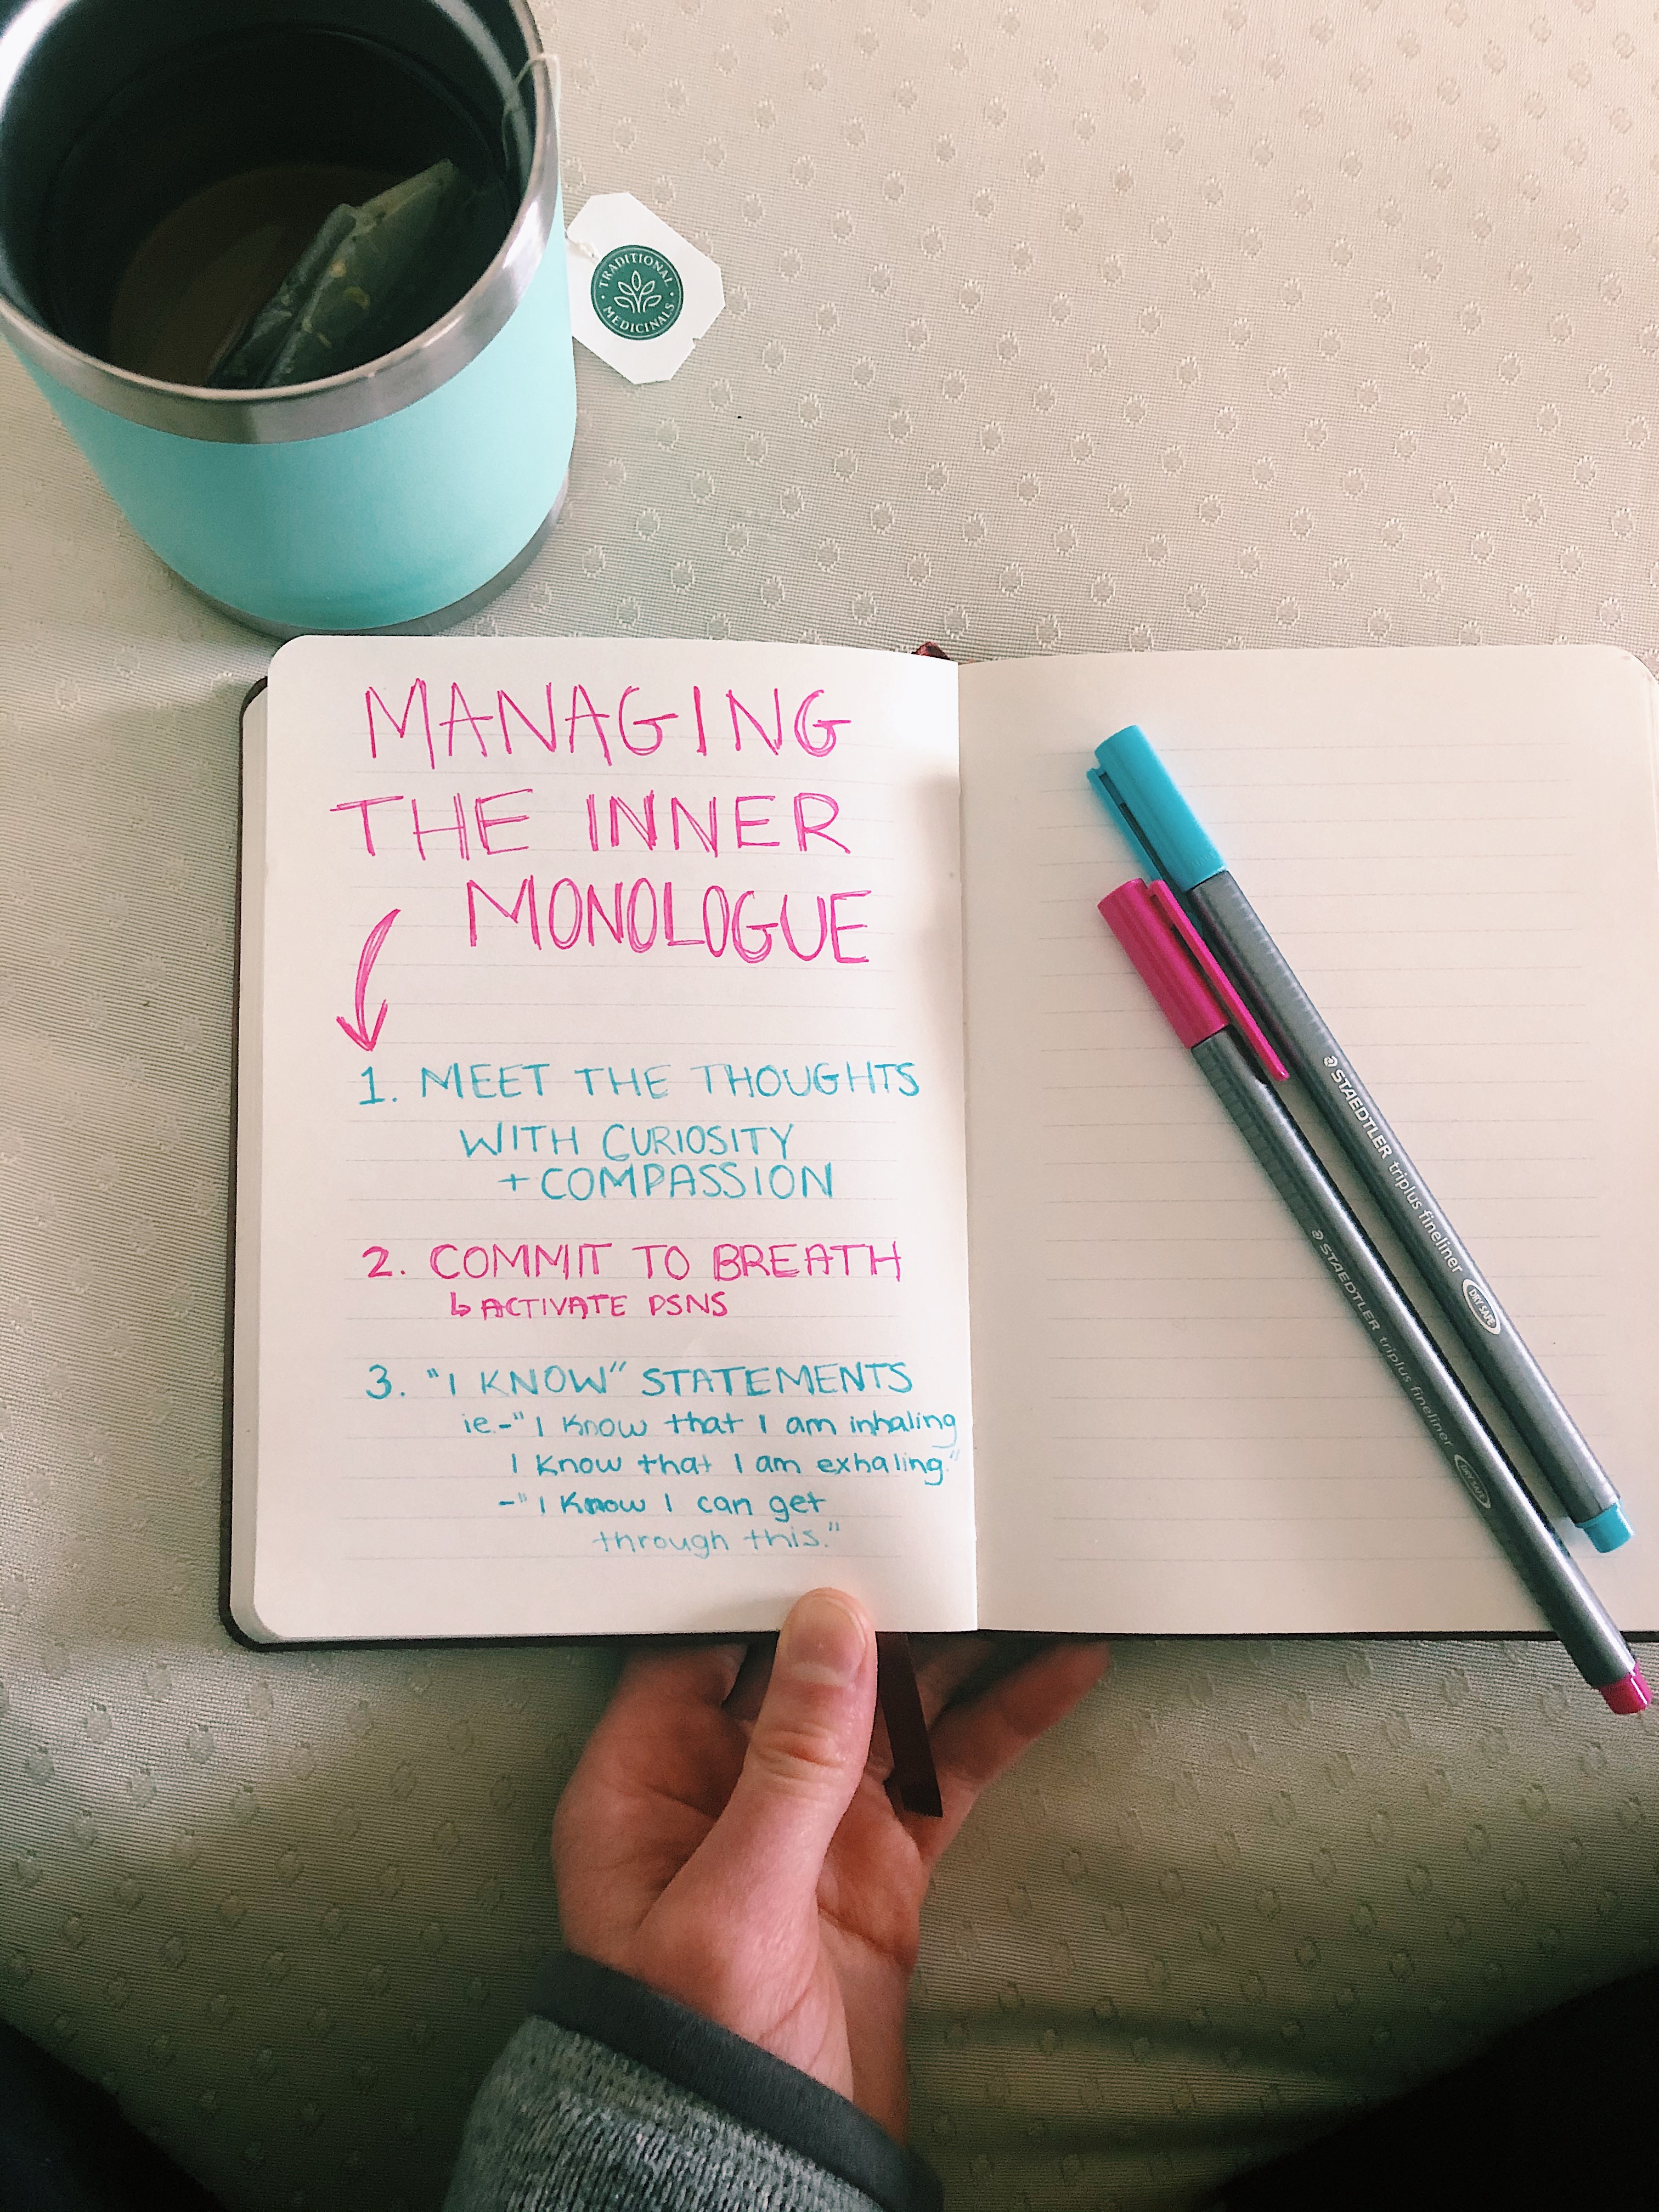 TRADITIONAL
MEDICINALS
MANAGING
THE INNER
MONOLOGUE
1. MEET THE THOUGHTS
WITH CURIOSITY
+ COMPASSION
2. COMMIT TO BREATH
↳ ACTIVATE PSNS
3. "I KNOW" STATEMENTS
ie.-"I know that I am inhaling
I know that I am exhaling."
-"I know I can get
through this."
STAEDTLER triplus fineliner DRY SAFE
STAEDTLER triplus fineliner DRY SAFE